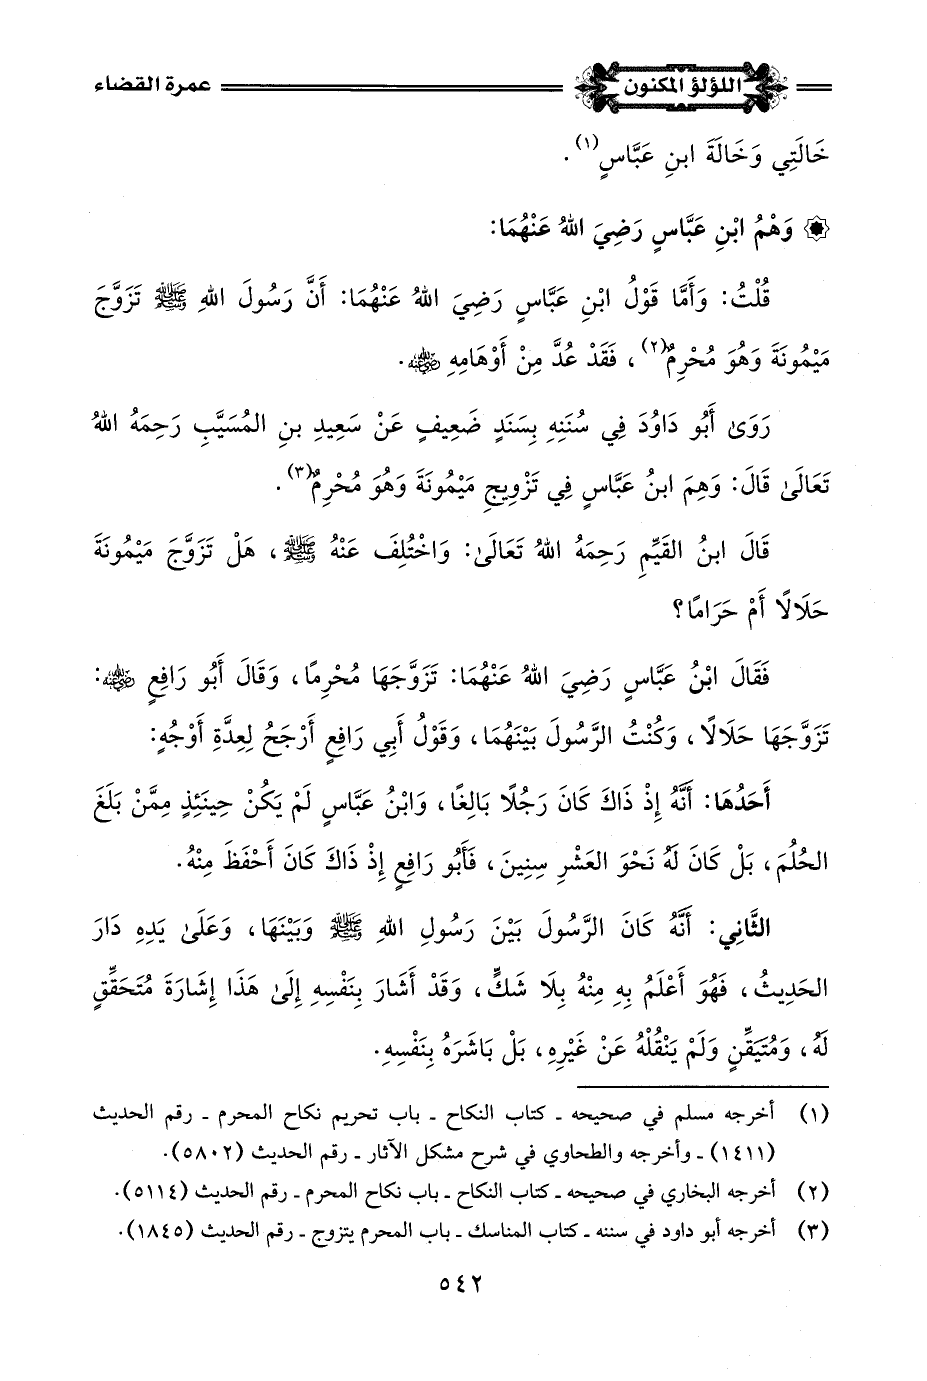 اللؤلؤ المكنون
عمرة القضاء
خَالَتِي وَخَالَةَ ابنِ عَبَّاسٍ(١).
وَهْمُ ابْنِ عَبَّاسٍ رَضِيَ اللهُ عَنْهُمَا:
قُلْتُ: وَأَمَّا قَوْلُ ابْنِ عَبَّاسٍ رَضِيَ اللهُ عَنْهُمَا: أَنَّ رَسُولَ اللهِ ﷺ تَزَوَّجَ
مَيْمُونَةَ وَهُوَ مُحْرِمٌ(٢)، فَقَدْ عُدَّ مِنْ أَوْهَامِهِ رضي الله عنه.
رَوَىٰ أَبُو دَاوُدَ فِي سُنَنِهِ بِسَنَدٍ ضَعِيفٍ عَنْ سَعِيدِ بنِ المُسَيَّبِ رَحِمَهُ اللهُ
تَعَالَىٰ قَالَ: وَهِمَ ابنُ عَبَّاسٍ فِي تَزْوِيجِ مَيْمُونَةَ وَهُوَ مُحْرِمٌ(٣).
قَالَ ابنُ القَيِّمِ رَحِمَهُ اللهُ تَعَالَىٰ: وَاخْتُلِفَ عَنْهُ ﷺ، هَلْ تَزَوَّجَ مَيْمُونَةَ
حَلَالًا أَمْ حَرَامًا؟
فَقَالَ ابْنُ عَبَّاسٍ رَضِيَ اللهُ عَنْهُمَا: تَزَوَّجَهَا مُحْرِمًا، وَقَالَ أَبُو رَافِعٍ رضي الله عنه:
تَزَوَّجَهَا حَلَالًا، وَكُنْتُ الرَّسُولَ بَيْنَهُمَا، وَقَوْلُ أَبِي رَافِعٍ أَرْجَحُ لِعِدَّةِ أَوْجُهٍ:
أَحَدُهَا: أَنَّهُ إِذْ ذَاكَ كَانَ رَجُلًا بَالِغًا، وَابْنُ عَبَّاسٍ لَمْ يَكُنْ حِينَئِذٍ مِمَّنْ بَلَغَ
الحُلُمَ، بَلْ كَانَ لَهُ نَحْوَ العَشْرِ سِنِينَ، فَأَبُو رَافِعٍ إِذْ ذَاكَ كَانَ أَحْفَظَ مِنْهُ.
الثَّانِي: أَنَّهُ كَانَ الرَّسُولَ بَيْنَ رَسُولِ اللهِ ﷺ وَبَيْنَهَا، وَعَلَىٰ يَدِهِ دَارَ
الحَدِيثُ، فَهُوَ أَعْلَمُ بِهِ مِنْهُ بِلَا شَكٍّ، وَقَدْ أَشَارَ بِنَفْسِهِ إِلَىٰ هَذَا إِشَارَةَ مُتَحَقِّقٍ
لَهُ، وَمُتَيَقِّنٍ وَلَمْ يَنْقُلْهُ عَنْ غَيْرِهِ، بَلْ بَاشَرَهُ بِنَفْسِهِ.
(١) أخرجه مسلم في صحيحه ـ كتاب النكاح ـ باب تحريم نكاح المحرم ـ رقم الحديث
(١٤١١) ـ وأخرجه والطحاوي في شرح مشكل الآثار ـ رقم الحديث (٥٨٠٢).
(٢) أخرجه البخاري في صحيحه ـ كتاب النكاح ـ باب نكاح المحرم ـ رقم الحديث (٥١١٤).
(٣) أخرجه أبو داود في سننه ـ كتاب المناسك ـ باب المحرم يتزوج ـ رقم الحديث (١٨٤٥).
٥٤٢